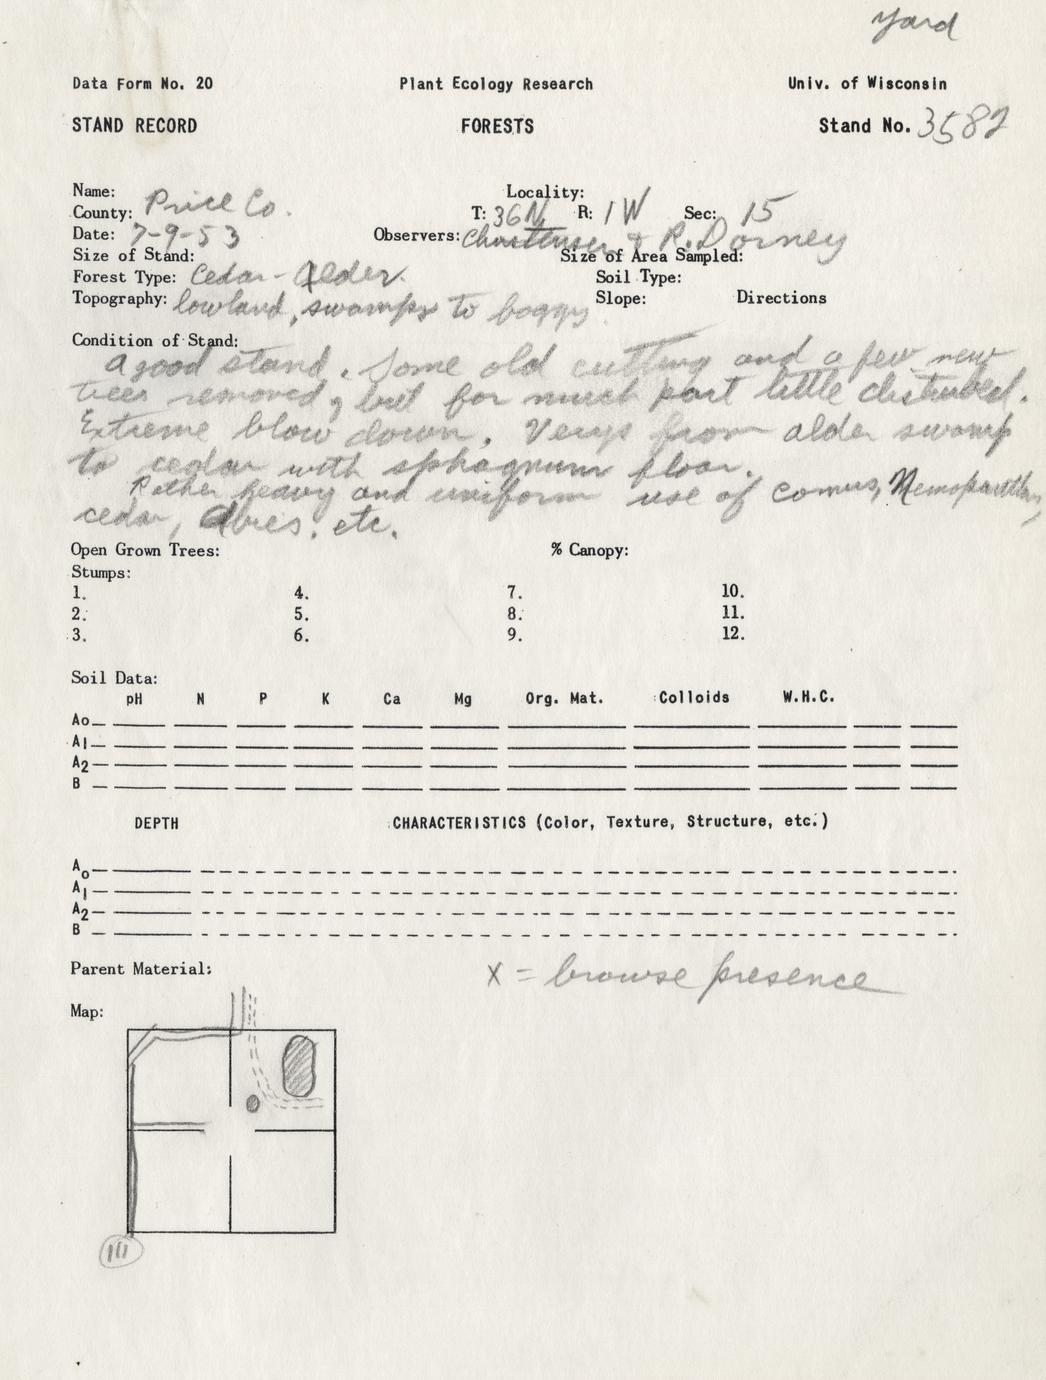 yard
Data Form No. 20 Plant Ecology Research Univ. of Wisconsin
STAND RECORD FORESTS Stand No. 3582
Name: Locality:
County: Price Co. T: 36N R: 1W Sec: 15
Date: 7-9-53 Observers: Christensen & R. Dorney
Size of Stand: Size of Area Sampled:
Forest Type: Cedar-Alder. Soil Type:
Topography: lowland, swampy to boggy. Slope: Directions
Condition of Stand:
A good stand. Some old cutting and a few new
trees removed, but for much part little disturbed.
Extreme blow down. Verys from alder swamp
to cedar with sphagnum floor.
Rather heavy and uniform use of cornus, Nemopanthus,
cedar, Abies. etc.
Open Grown Trees: % Canopy:
Stumps:
1. 4. 7. 10.
2. 5. 8. 11.
3. 6. 9. 12.
Soil Data:
pH N P K Ca Mg Org. Mat. Colloids W.H.C.
Ao
A1
A2
B
DEPTH CHARACTERISTICS (Color, Texture, Structure, etc.)
Ao
A1
A2
B
Parent Material: X = browse presence
Map:
111